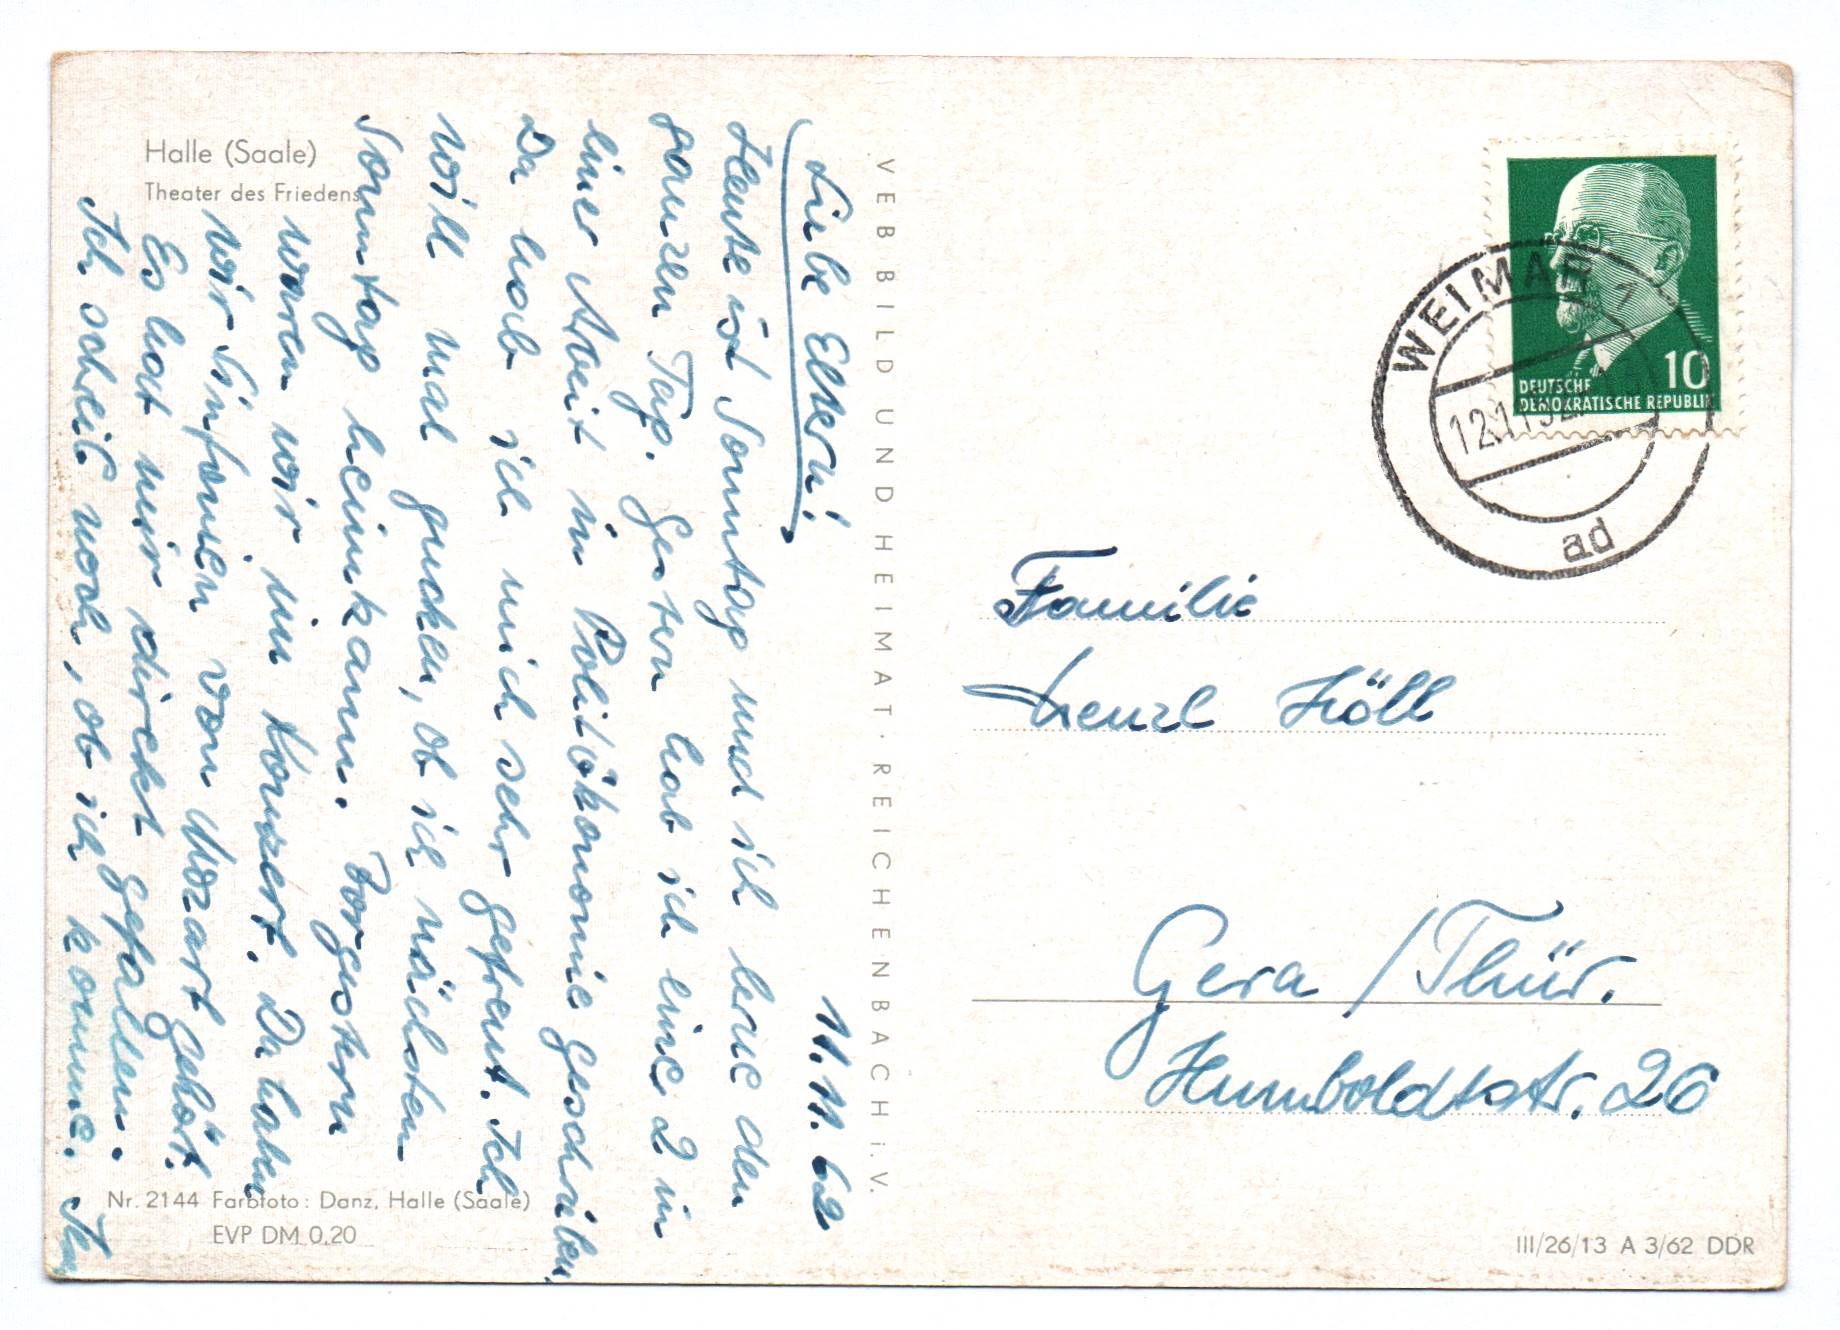 Halle (Saale)
Theater des Friedens
11.11.62
Liebe Eltern!
Heute ist Sonntag und ich lerne den
ganzen Tag. Gestern hab ich eine 2 in
einer Arbeit in Politökonomie geschrieben.
Da hab ich mich sehr gefreut. Ich
will mal gucken, ob ich nächsten
Sonntag heimkann. Vorgestern
waren wir im Konzert. Da haben
wir Sinfonien von Mozart gehört.
Es hat mir direkt gefallen.
Ich schreib noch, ob ich komme.
Nr. 2144 Farbfoto: Danz, Halle (Saale)
EVP DM 0,20
VEB BILD UND HEIMAT · REICHENBACH i. V.
DEUTSCHE
DEMOKRATISCHE REPUBLIK
10
WEIMAR 1
ad
Familie
Gera / Thür.
Humboldtstr. 26
III/26/13 A 3/62 DDR